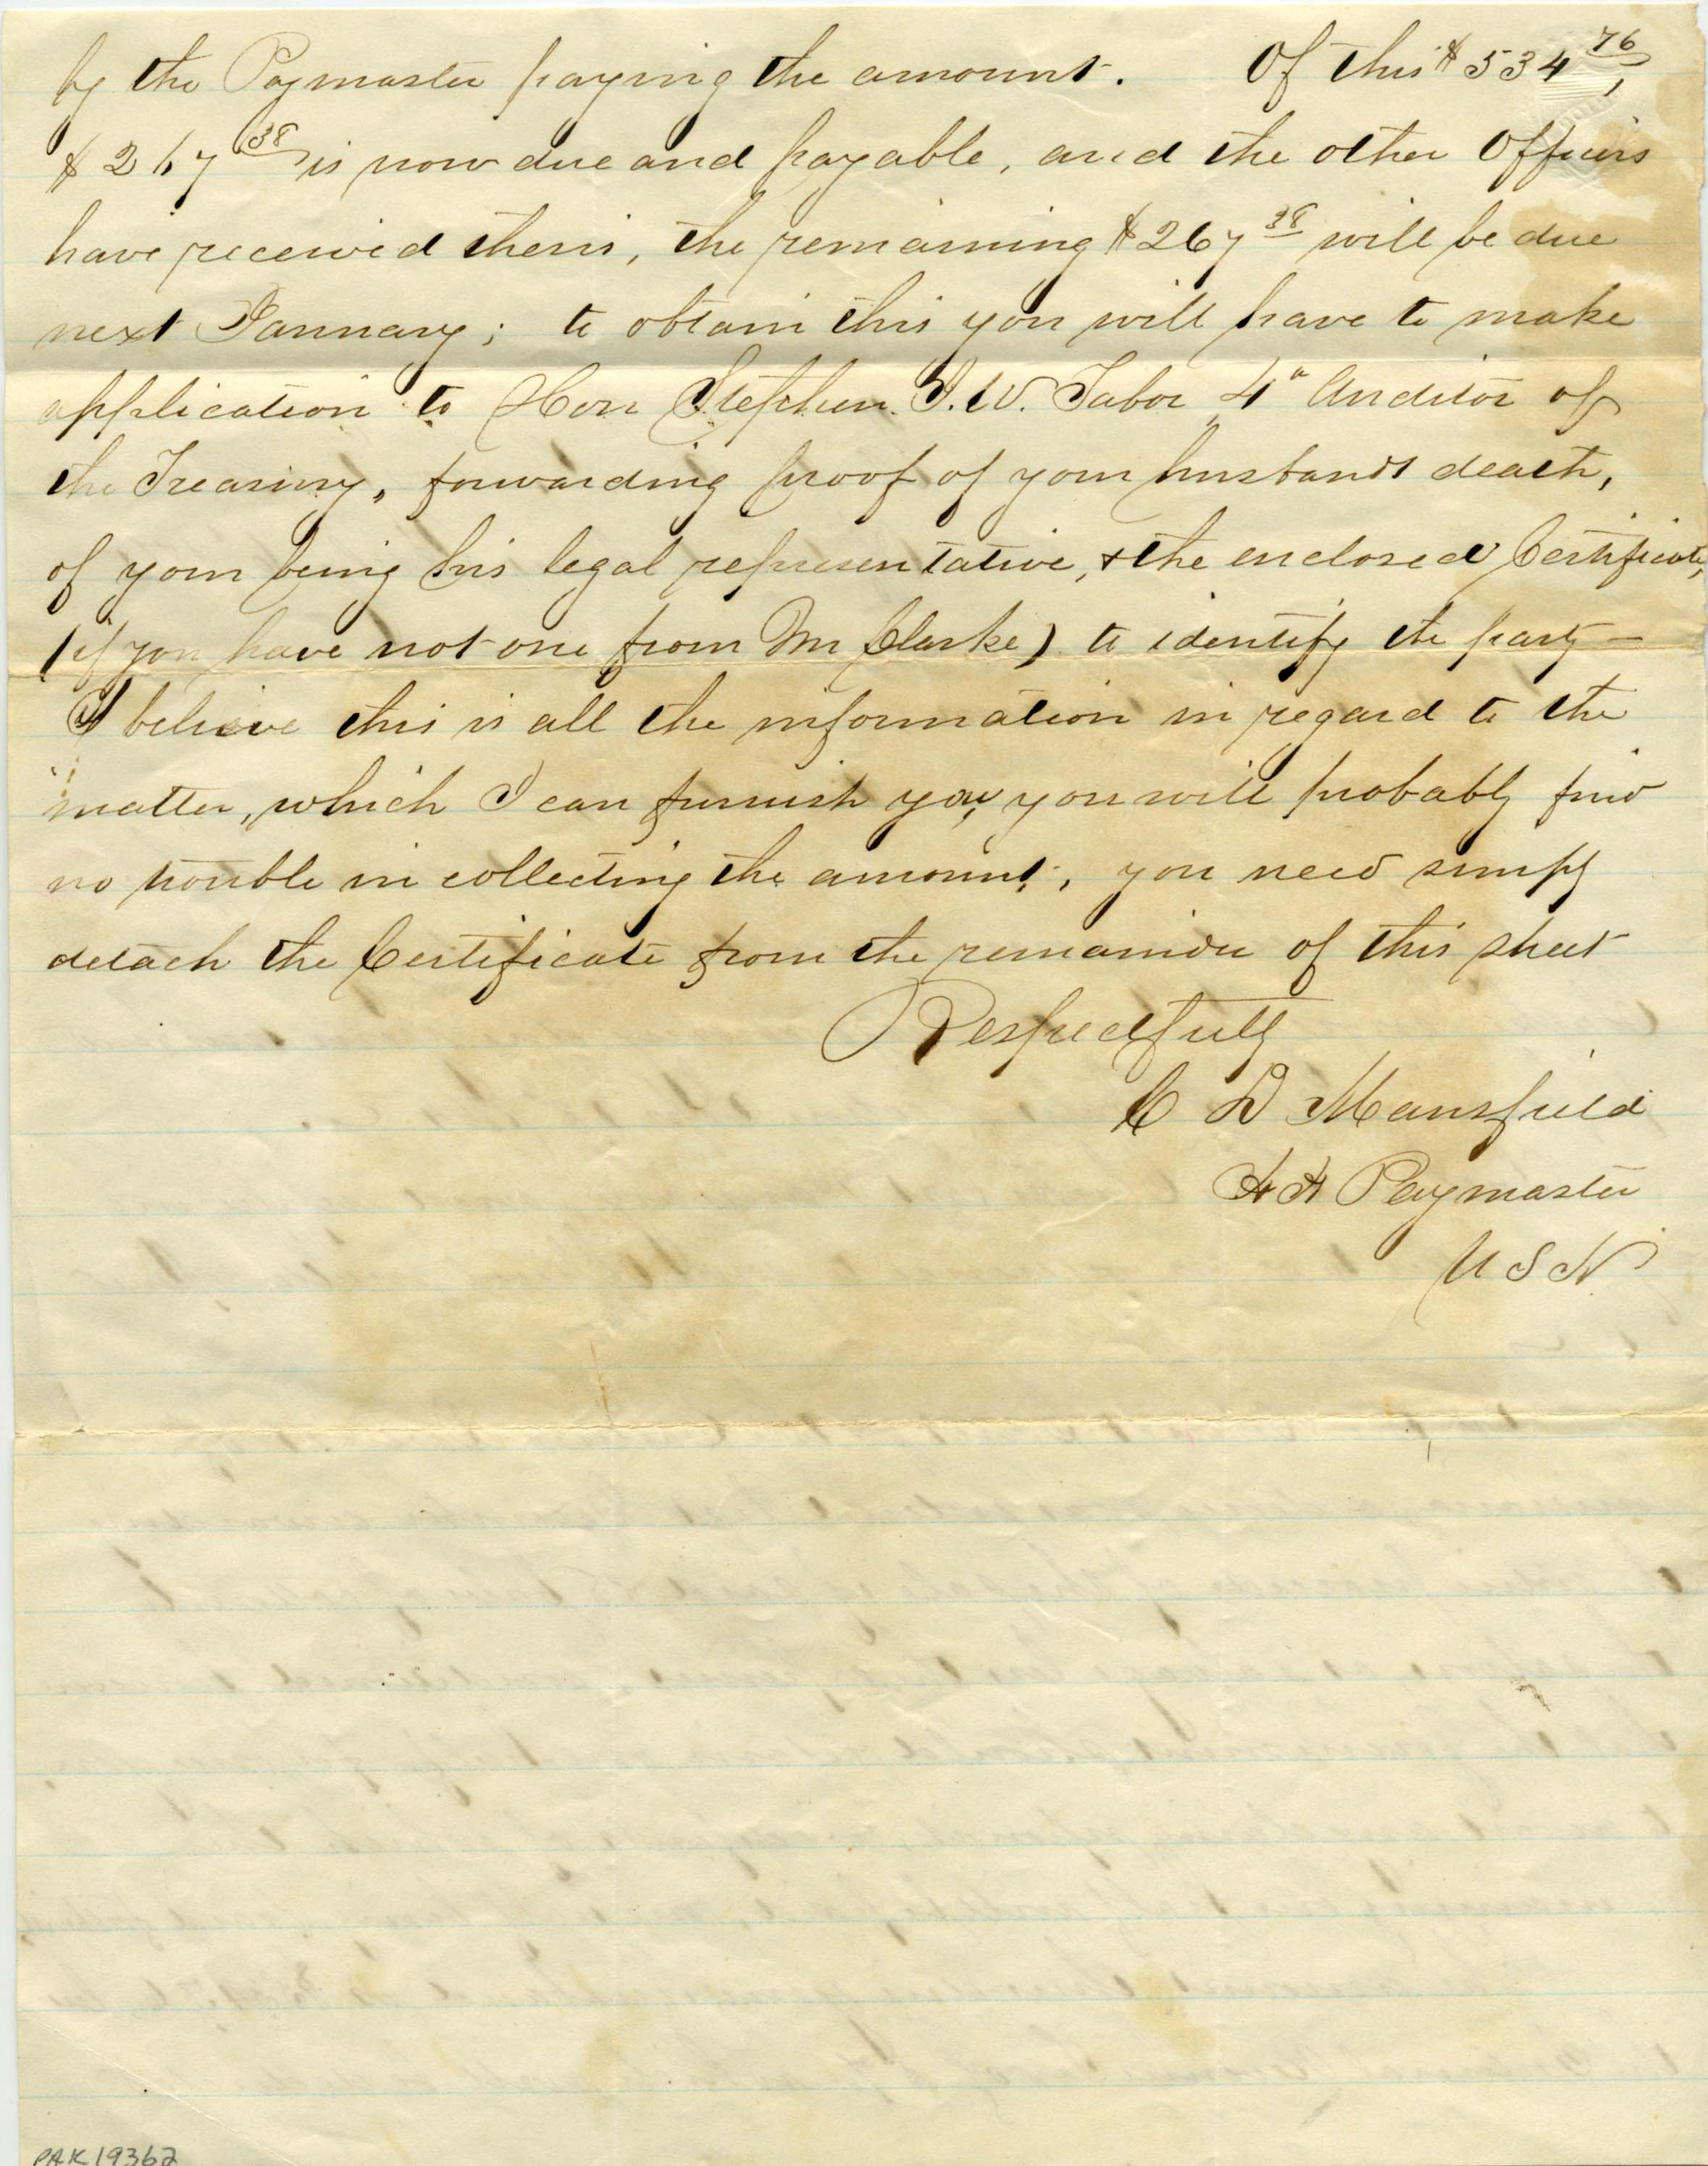 by the Paymaster paying the amount. Of this $534 76,
$267 38 is now due and payable, and the other Officers
have received theirs, the remaining $267 38 will be due
next January; to obtain this you will have to make
application to Hon Stephen J. W. Tabor 4" Auditor of
the Treasury, forwarding proof of your husbands death,
of your being his legal representative, & the enclosed Certificate,
(if you have not one from Mr Clarke) to identify the party —
I believe this is all the information in regard to the
matter, which I can furnish you, you will probably find
no trouble in collecting the amount, you need simply
detach the Certificate from the remainder of this sheet
Respectfully
C D Mansfield
A A Paymaster
U S N
PAK19362